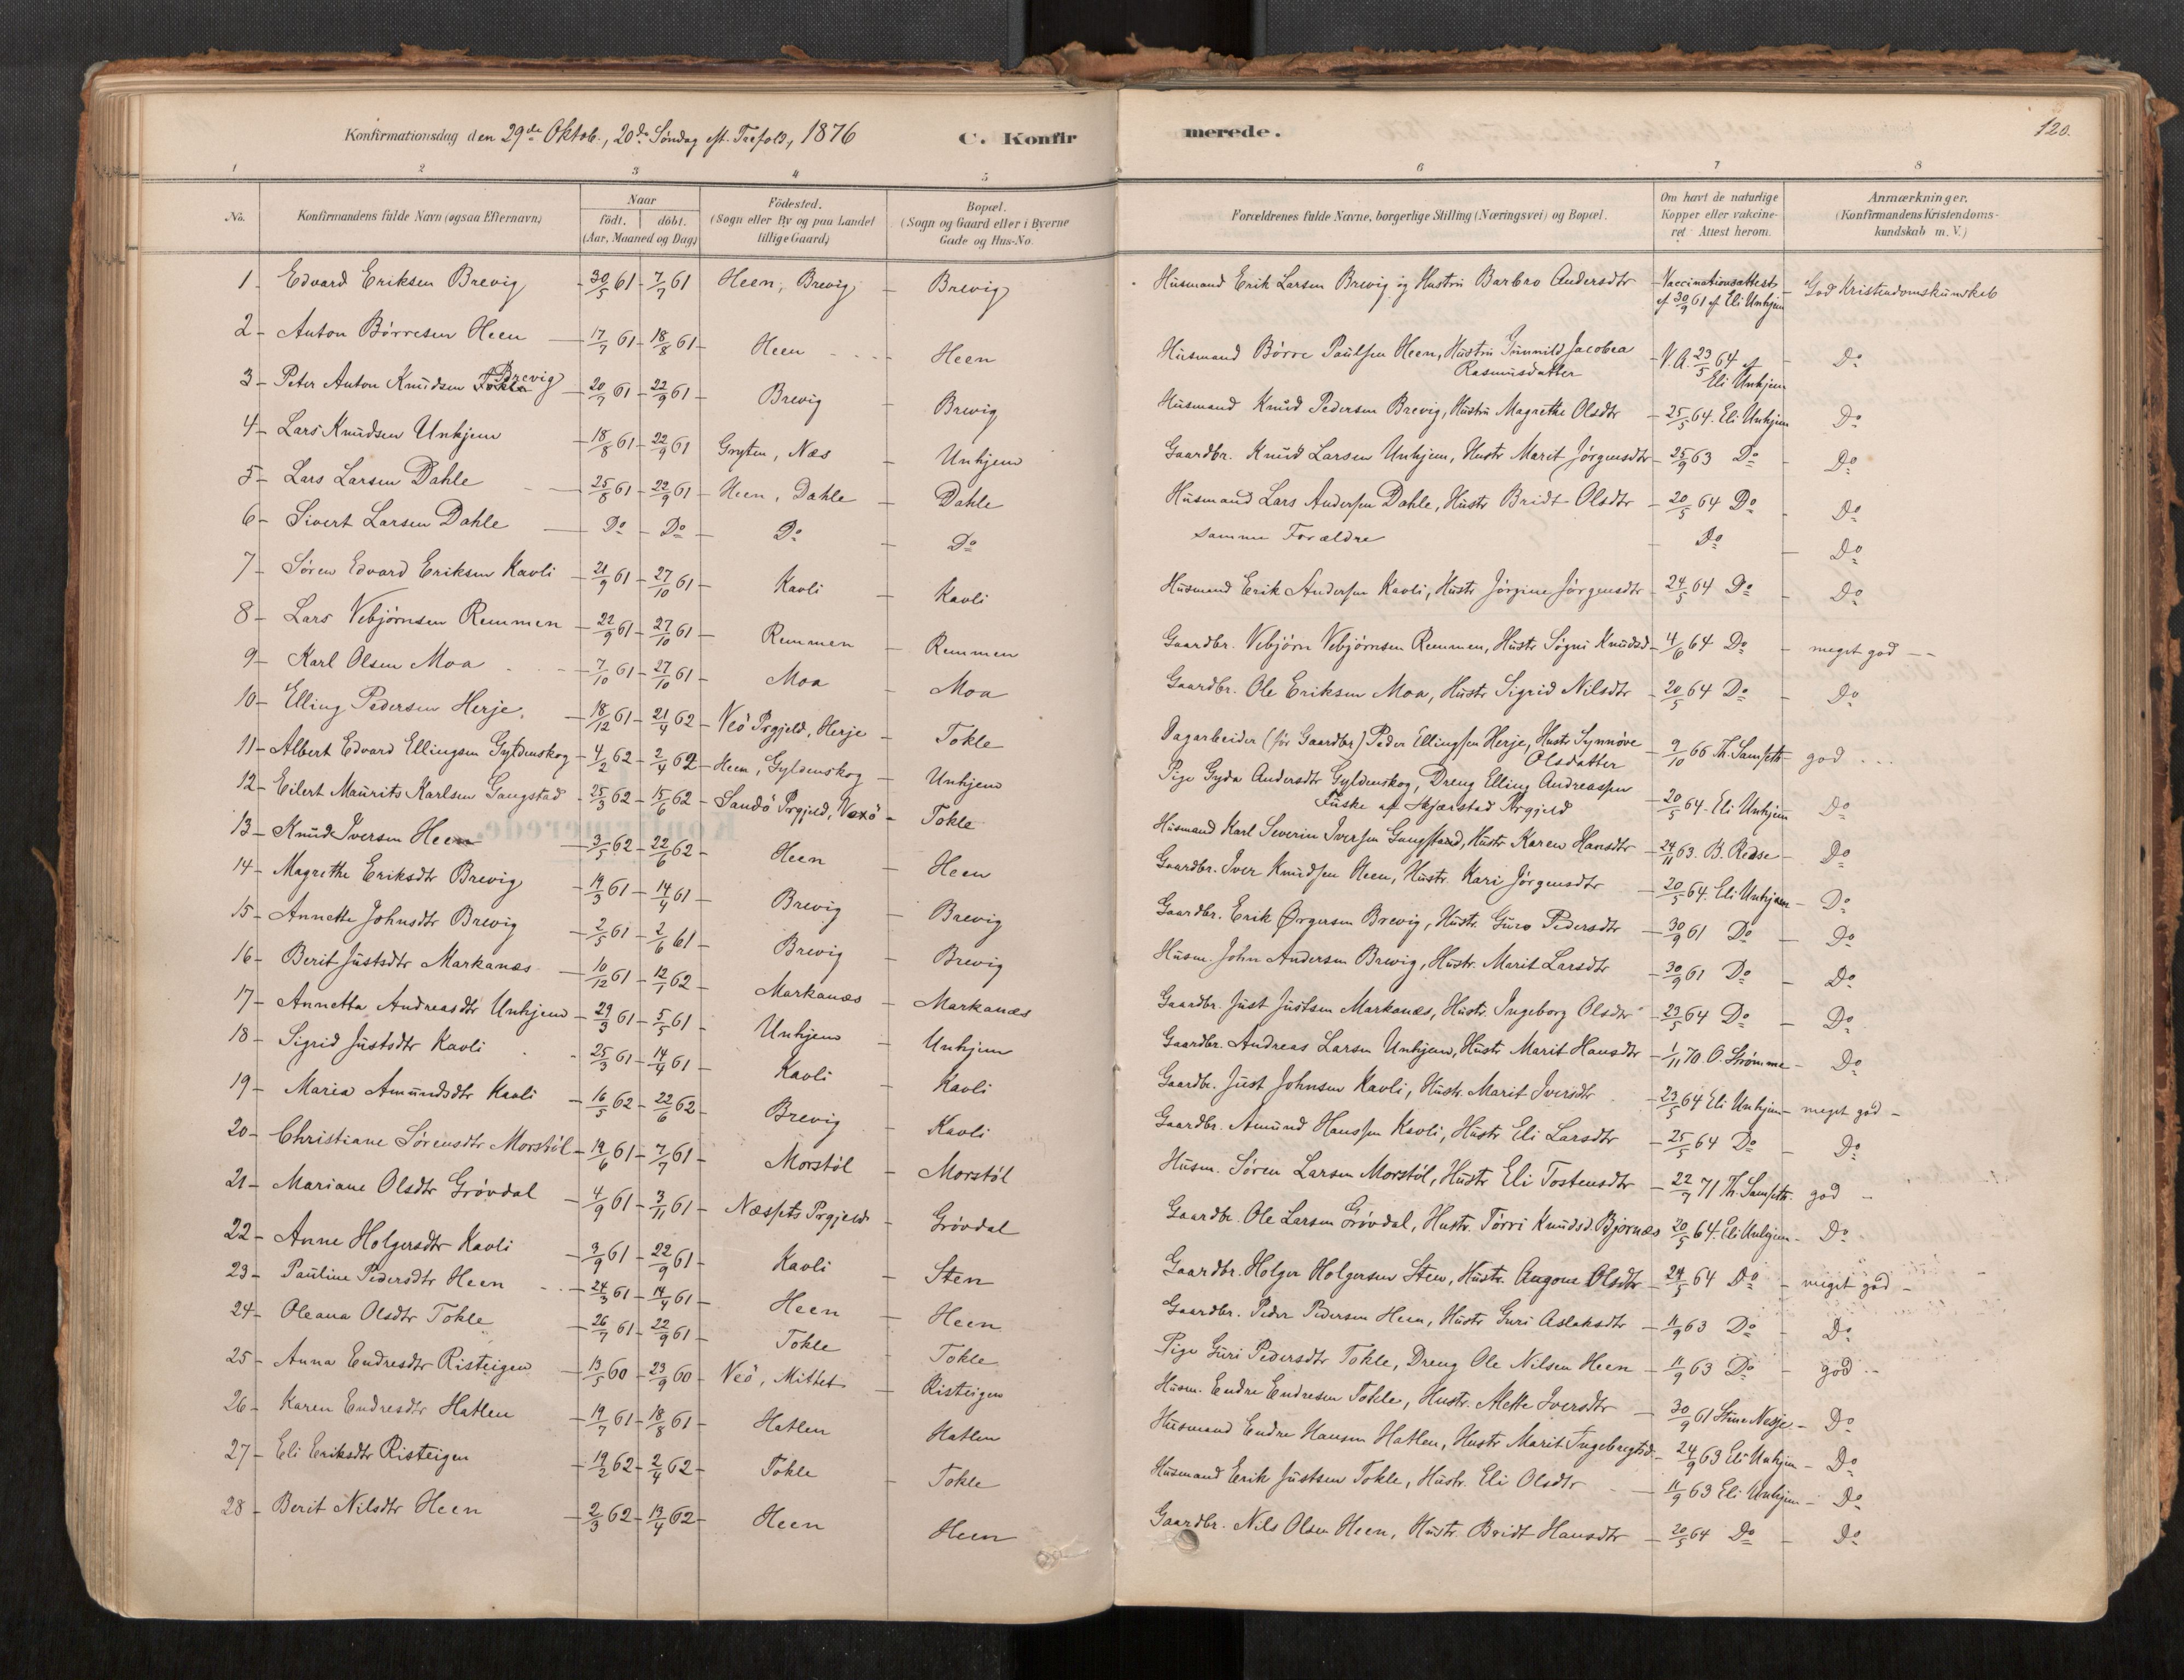 Konfirmationsdag den 29de Oktob., 20de Søndag eft. Trefold., 1876
C. Konfirmerede.
120.
1 2 3 4 5 6 7 8
No. Konfirmandens fulde Navn (ogsaa Efternavn) Naar födt. döbt. (Aar, Maaned og Dag) Födested. (Sogn eller By og paa Landet tillige Gaard) Bopæl. (Sogn og Gaard eller i Byerne Gade og Hus-No. Forældrenes fulde Navne, borgerlige Stilling (Næringsvei) og Bopæl. Om havt de naturlige Kopper eller vakcineret. Attest herom. Anmærkninger. (Konfirmandens Kristendomskundskab m. V.)
1 - Edvard Eriksen Brevig - 30/5 61 - 7/7 61 Heen, Brevig - Brevig Husmand Erik Larsen Brevig og Hustru Barbro Andersdtr - Vaccinationsattest af 30/9 61 af Eli Unhjem - God Kristendomskundskab
2 - Anton Børresen Heen - 17/7 61 - 18/8 61 - Heen - Heen Husmand Børre Paulsen Heen, Hustru Gunnild Jacobea Rasmusdatter - V.A. 23/5 64 af Eli Unhjem - Do
3 - Peter Anton Knudsen Tokle Brevig - 20/7 61 - 22/9 61 Brevig - Brevig Husmand Knud Pedersen Brevig, Hustru Magrethe Olsdtr - 25/5 64. Eli Unhjem Do
4 - Lars Knudsen Unhjem - 18/8 61 - 22/9 61 Gryten, Næs - Unhjem Gaardbr. Knud Larsen Unhjem, Hustr Marit Jörgensdtr - 25/9 63 Do - Do
5 - Lars Larsen Dahle - 25/8 61 - 22/9 61 - Heen, Dahle - Dahle Husmand Lars Andersen Dahle, Hustr Bridt Olsdtr - 20/5 64 Do - Do
6 - Sivert Larsen Dahle - Do - Do - Do - Do samme Forældre - Do - Do
7 - Sören Edvard Eriksen Kavli - 21/9 61 - 27/10 61 - Kavli - Kavli Husmand Erik Andersen Kavli, Hustr Jörgine Jörgensdtr - 24/5 64 Do - Do
8 - Lars Vebjörnsen Remmen - 22/9 61 - 27/10 61 - Remmen - Remmen Gaardbr. Vebjörn Vebjörnsen Remmen, Hustr Sögni Knudsd - 4/6 64 Do - meget god --
9 - Karl Olsen Moa - 7/10 61 - 27/10 61 - Moa - Moa Gaardbr. Ole Eriksen Moa, Hustr Sigrid Nilsdtr - 20/5 64 Do - Do
10 - Elling Pedersen Herje. - 18/12 61 - 21/4 62 - Veö Prgjeld, Herje - Tokle Dagarbeider (för Gaardbr) Peder Ellingsen Herje, Hustr Synnöve Olsdatter - 9/10 66 Th. Samseth - god
11 - Albert Edvard Ellingsen Gyldenskog - 4/2 62 - 2/4 62 - Heen, Gyldenskog - Unhjem Pige Gyda Andersdtr Gyldenskog, Dreng Elling Andreassen Fuske af Skjærstad Prgjeld - 20/5 64. Eli Unhjem Do
12 - Eilert Maurits Karlsen Gangstad - 25/3 62 - 15/6 62 - Sandö Prgjeld, Vaxö - Tokle Husmand Karl Severin Iversen Gangstad, Hustr Karen Hansdtr - 24/11 63. B. Rødse - Do
13 - Knud Iversen Heen - 3/5 62 - 22/6 62 - Heen - Heen Gaardbr. Iver Knudsen Heen, Hustr. Kari Jörgensdtr - 20/5 64. Eli Unhjem - Do
14 - Magrethe Eriksdtr Brevig - 19/3 61 - 14/4 61 - Brevig - Brevig Gaardbr. Erik Ørgersen Brevig, Hustr. Guro Pedersdtr - 30/9 61 Do - Do
15 - Annette Johnsdtr Brevig - 2/5 61 - 2/6 61 - Brevig - Brevig Husm. John Andersen Brevig, Hustr. Marit Larsdtr - 30/9 61 Do - Do
16 - Berit Justsdtr Markanæs - 10/12 61 - 12/1 62 - Markanæs - Markanæs Gaardbr. Just Justsen Markanæs, Hustr. Ingeborg Olsdtr - 23/5 64 Do - Do
17 - Annetta Andreasdtr Unhjem - 29/3 61 - 5/5 61 - Unhjem - Unhjem Gaardbr. Andreas Larsen Unhjem, Hustr Marit Hansdtr - 1/11 70. O. Strömme - Do
18 - Sigrid Justsdtr Kavli - 25/3 61 - 14/4 61 - Kavli - Kavli Gaardbr. Just Johnsen Kavli, Hustr. Marit Iversdtr - 23/5 64 Eli Unhjem - meget god -
19 - Maria Amundsdtr Kavli - 16/5 62 - 22/6 62 - Brevig - Kavli Gaardbr. Amund Hanssen Kavli, Hustr Eli Larsdtr - 25/5 64 Do - Do
20 - Christiane Sörensdtr Morstöl - 19/6 61 - 7/7 61 - Morstöl - Morstöl Husm. Sören Larsen Morstöl, Hustr Eli Tostensdtr - 22/7 71 Th. Samseth. god -
21 - Mariane Olsdtr Grövdal - 4/9 61 - 3/11 61 - Næssets Prgjeld - Grövdal Gaardbr. Ole Larsen Grövdal, Hustr. Törri Knudsd. Bjornæs 20/5 64. Eli Unhjem - Do
22 - Anne Holgersdtr Kavli - 3/9 61 - 22/9 61 - Kavli - Sten Gaardbr. Holger Holgersen Sten, Hustr. Angone Olsdtr - 24/5 64 Do - meget god -
23 - Pauline Pedersdtr Heen - 24/3 61 - 14/4 61 - Heen - Heen Gaardbr. Peder Pedersen Heen, Hustr Guri Aslaksdtr - 11/9 63 Do - Do
24 - Oleana Olsdtr Tokle - 26/7 61 - 22/9 61 - Tokle - Tokle Pige Guri Pedersdtr Tokle, Dreng Ole Nilsen Heen - 11/9 63 Do - god -
25 - Anna Endresdtr Risteigen - 13/5 60 - 23/9 60 - Veö, Mittet - Risteigen Husm. Endre Endresen Tokle, Hustr. Mette Iversdtr - 30/9 61 Stine Nesje - Do
26 - Karen Endresdtr Hatlen - 19/7 61 - 18/8 61 - Hatlen - Hatlen Husmand Endre Hansen Hatlen, Hustr Marit Ingebrigtsd. 24/9 63 Eli Unhjem - Do
27 - Eli Eriksdtr Risteigen - 19/2 62 - 2/4 62 - Tokle - Tokle Husmand Erik Justsen Tokle, Hustr. Eli Olsdtr - 11/9 63 Eli Unhjem - Do
28 - Berit Nilsdtr Heen - 2/3 62 - 13/4 62 - Heen - Heen Gaardbr. Nils Olsen Heen, Hustr. Bridt Hansdtr - 20/5 64 Do - Do